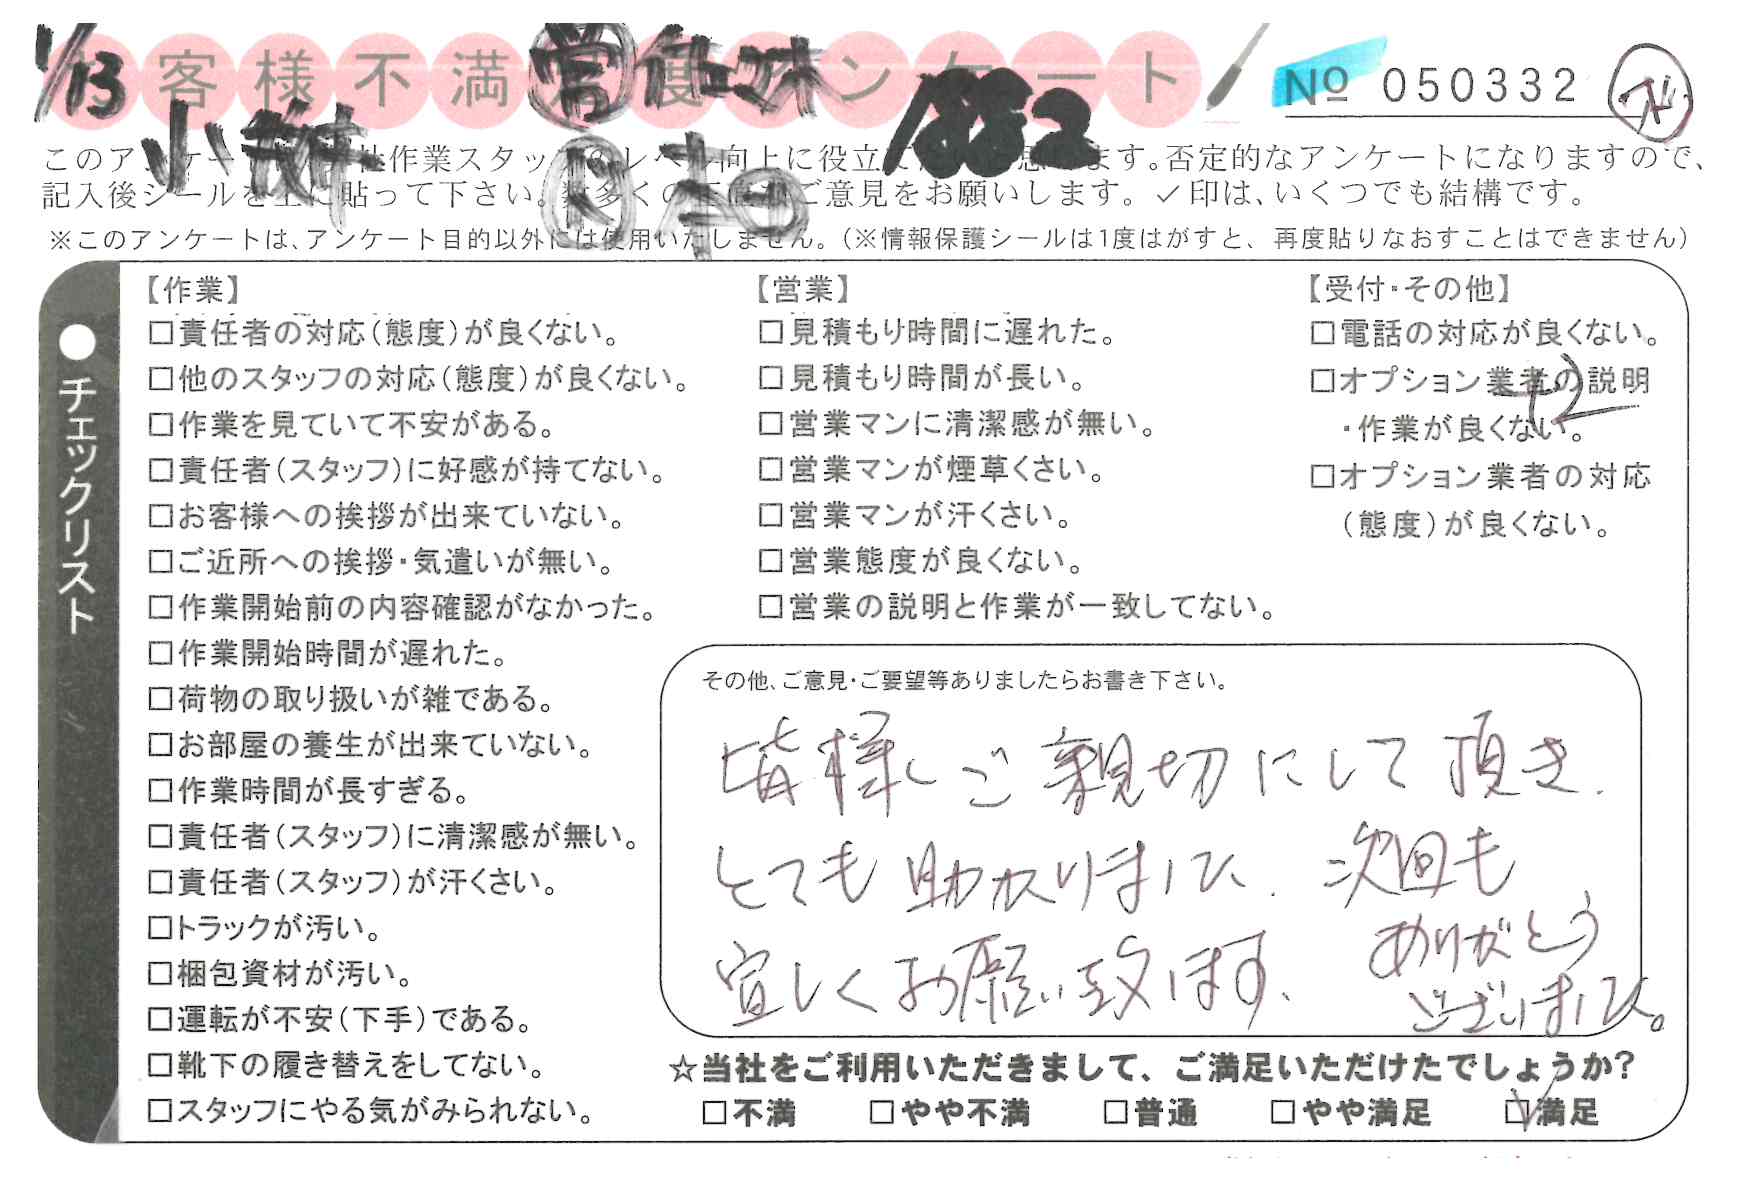 1/13
客様不満 度 ンケート
No 050332
小林
1852
このアンケー 社作業スタッ のレベル向上に役立て 思 ます。否定的なアンケートになりますので、
記入後シールを上に貼って下さい。数多くの ご意見をお願いします。✓印は、いくつでも結構です。
※このアンケートは、アンケート目的以外には使用いたしません。(※情報保護シールは1度はがすと、再度貼りなおすことはできません)
●チェックリスト
【作業】
□責任者の対応(態度)が良くない。
□他のスタッフの対応(態度)が良くない。
□作業を見ていて不安がある。
□責任者(スタッフ)に好感が持てない。
□お客様への挨拶が出来ていない。
□ご近所への挨拶・気遣いが無い。
□作業開始前の内容確認がなかった。
□作業開始時間が遅れた。
□荷物の取り扱いが雑である。
□お部屋の養生が出来ていない。
□作業時間が長すぎる。
□責任者(スタッフ)に清潔感が無い。
□責任者(スタッフ)が汗くさい。
□トラックが汚い。
□梱包資材が汚い。
□運転が不安(下手)である。
□靴下の履き替えをしてない。
□スタッフにやる気がみられない。
【営業】
□見積もり時間に遅れた。
□見積もり時間が長い。
□営業マンに清潔感が無い。
□営業マンが煙草くさい。
□営業マンが汗くさい。
□営業態度が良くない。
□営業の説明と作業が一致してない。
【受付・その他】
□電話の対応が良くない。
□オプション業者の説明
・作業が良くない。
□オプション業者の対応
(態度)が良くない。
+2
その他、ご意見・ご要望等ありましたらお書き下さい。
皆様 ご親切にして頂き.
とても助かりました. 次回も
宜しくお願い致します.
ありがとう
ございました。
☆当社をご利用いただきまして、ご満足いただけたでしょうか?
□不満 □やや不満 □普通 □やや満足 ☑満足